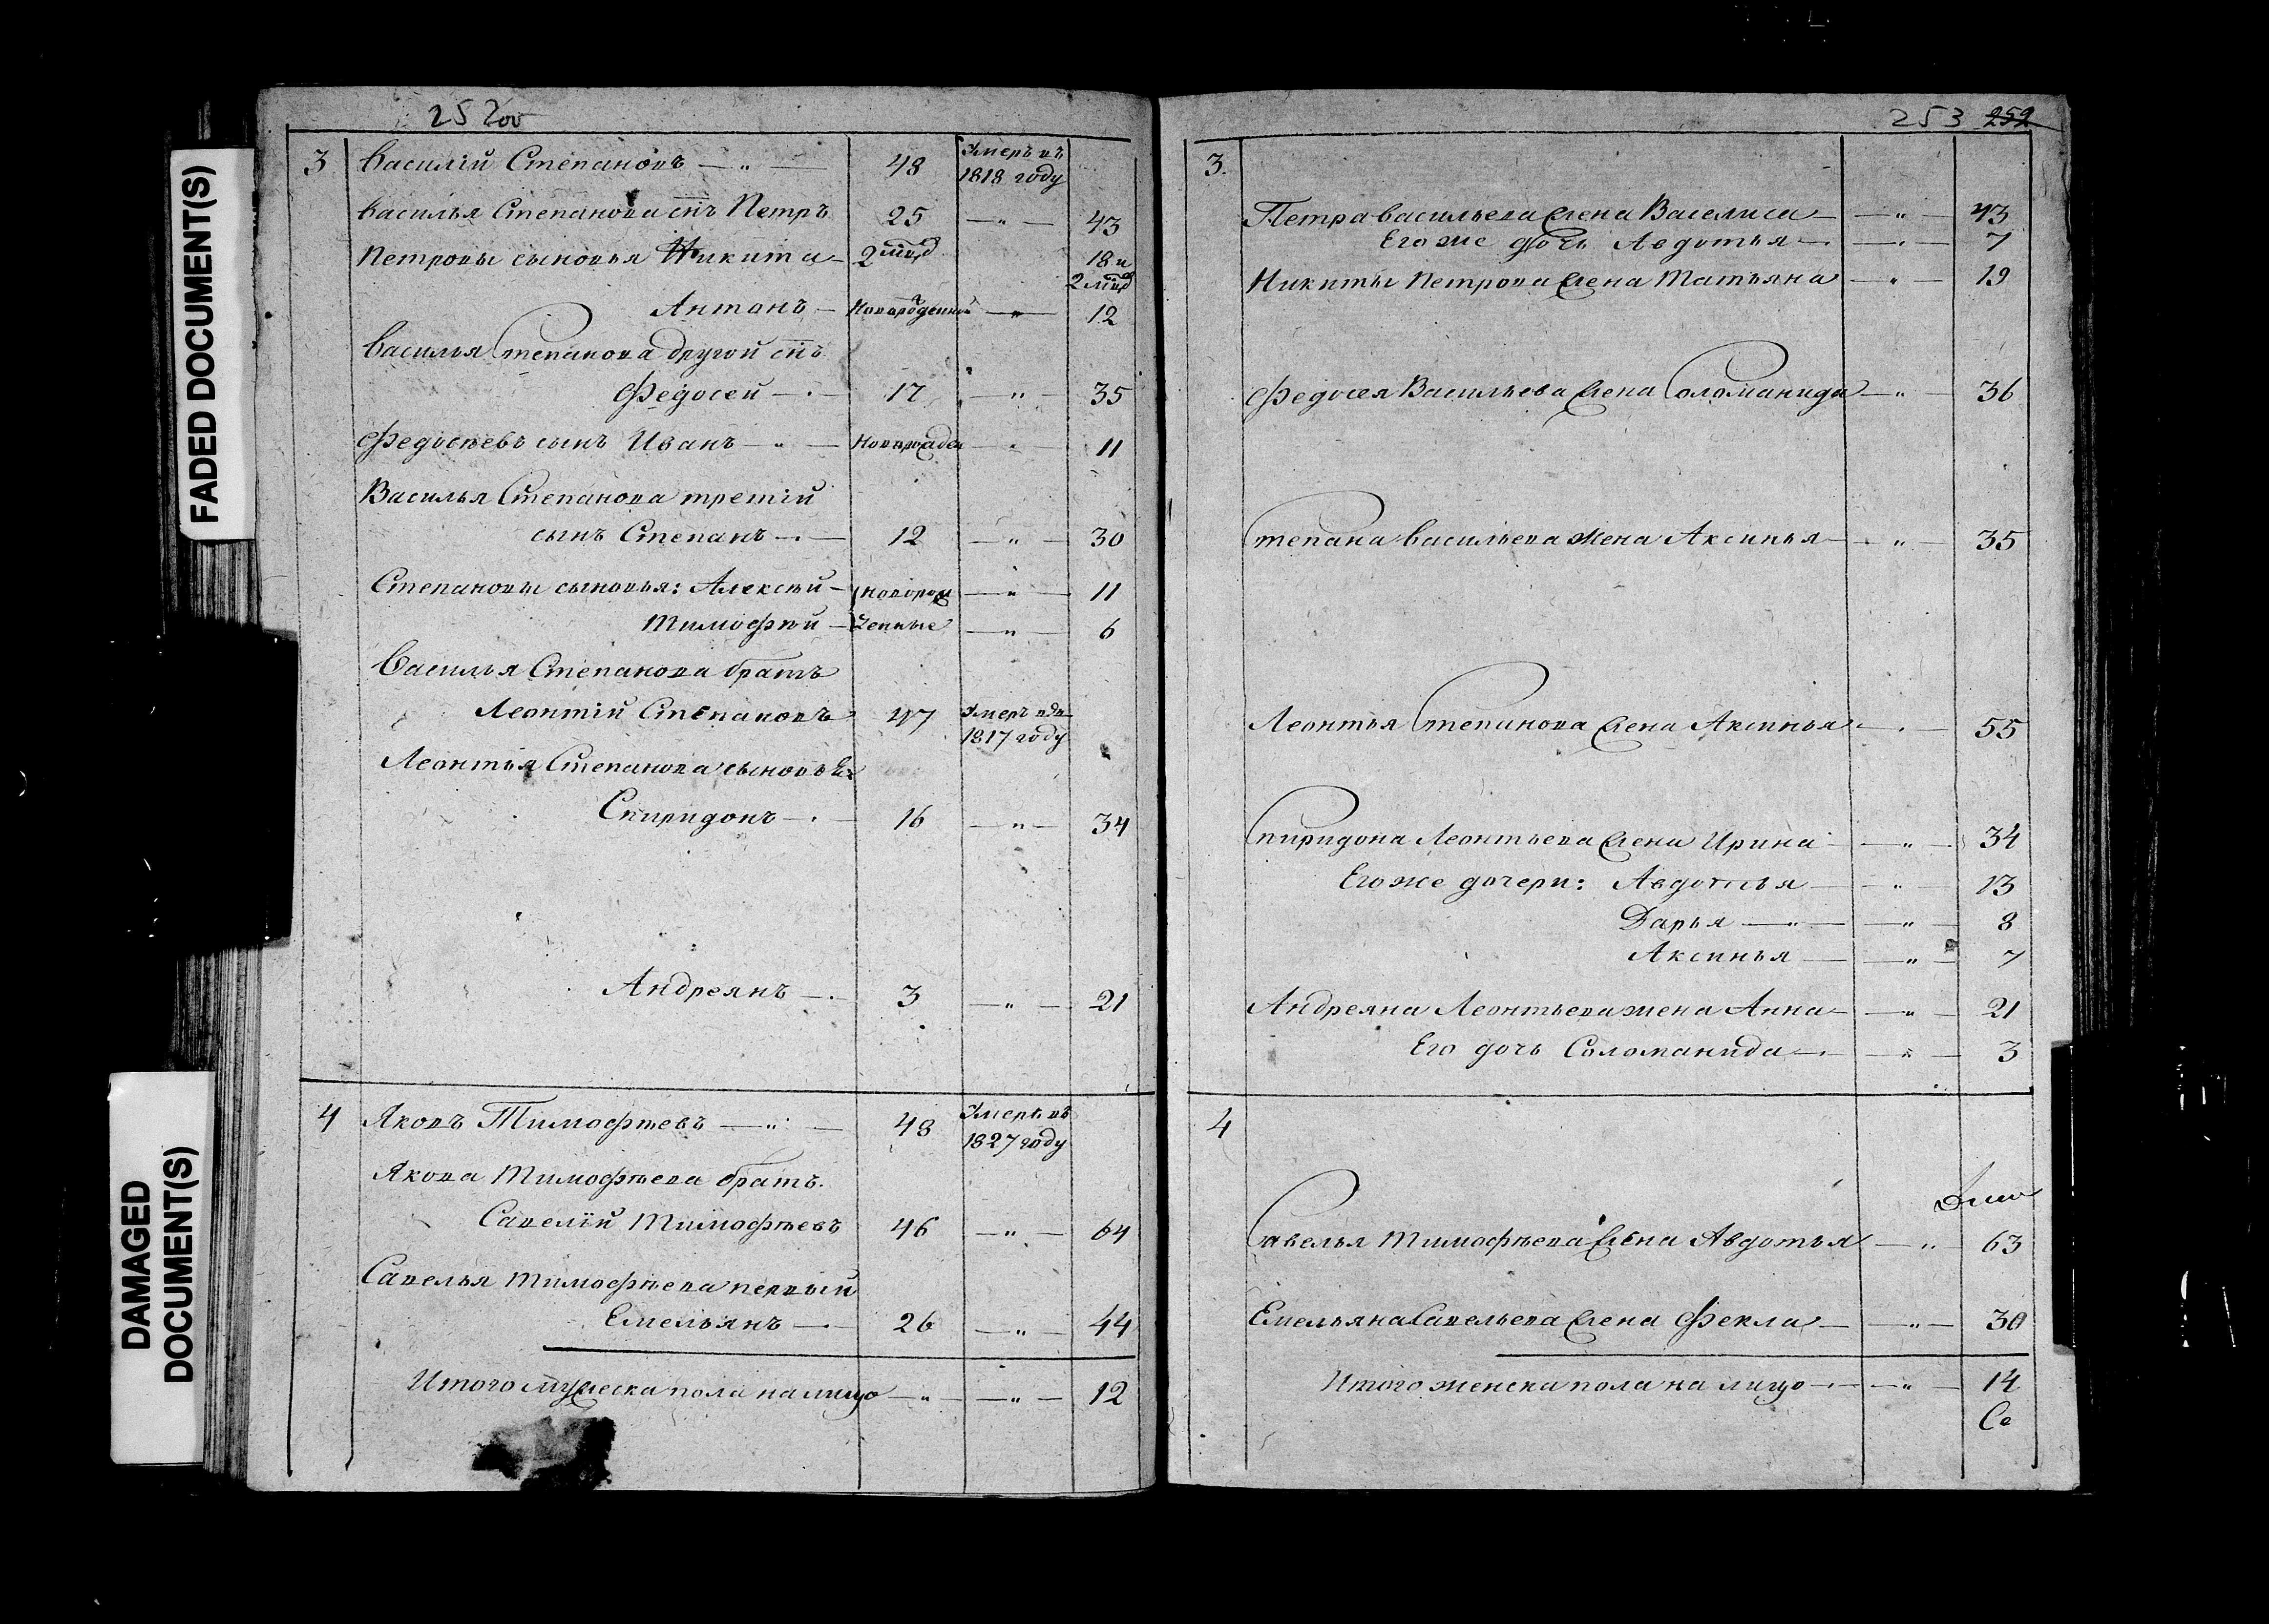 FADED DOCUMENT(S)
DAMAGED
DOCUMENT(S)
252об
3 Василій Степановъ — 48 Умеръ въ
1818 году
Василья Степанова сн̃ъ Петръ 25 — " — 43
Петровы сыновья Никита — 2 мц̃а 18 и
2 мц̃а
Антонъ — новорожденной — " — 12
Василья Степанова другой сн̃ъ
Федосей — 17 — " — 35
Федосѣевъ сынъ Иванъ — " — новорожден — " — 11
Василья Степанова третій
сынъ Степанъ — 12 — " — 30
Степановы сыновья: Алексѣй — новорож — " — 11
Тимофѣй — денные — " — 6
Василья Степанова братъ
Леонтій Степановъ 47 Умеръ въ
1817 году
Леонтья Степанова сыновья
Спиридонъ — 16 — " — 34
Андреянъ — 3 — " — 21
4 Яковъ Тимофѣевъ — " — 48 Умеръ въ
1827 году
Якова Тимофѣева братъ
Савелій Тимофѣевъ 46 — " — 64
Савелья Тимофѣева первый
Емельянъ — 26 — " — 44
Итого мужеска пола на лицо — " — " — 12
253 252
3.
Петра Васильева жена Василиса — " — 43
Его же дочь Авдотья — 7
Никиты Петрова жена Татьяна — " — 19
Федосея Васильева жена Соломанида — " — 36
Степана Васильева жена Аксинья — " — 35
Леонтья Степанова жена Аксинья — 55
Спиридона Леонтьева жена Ирина — " — 34
Его же дочери: Авдотья — " — 13
Дарья — " — " — 8
Аксинья — " — 7
Андреяна Леонтьева жена Анна — " — 21
Его дочь Соломанида — " — 3
4
Савелья Тимофѣева жена Авдотья — " — 63
Емельяна Савельева жена Фекла — " — 30
Итого женска пола на лицо — " — 14
Се